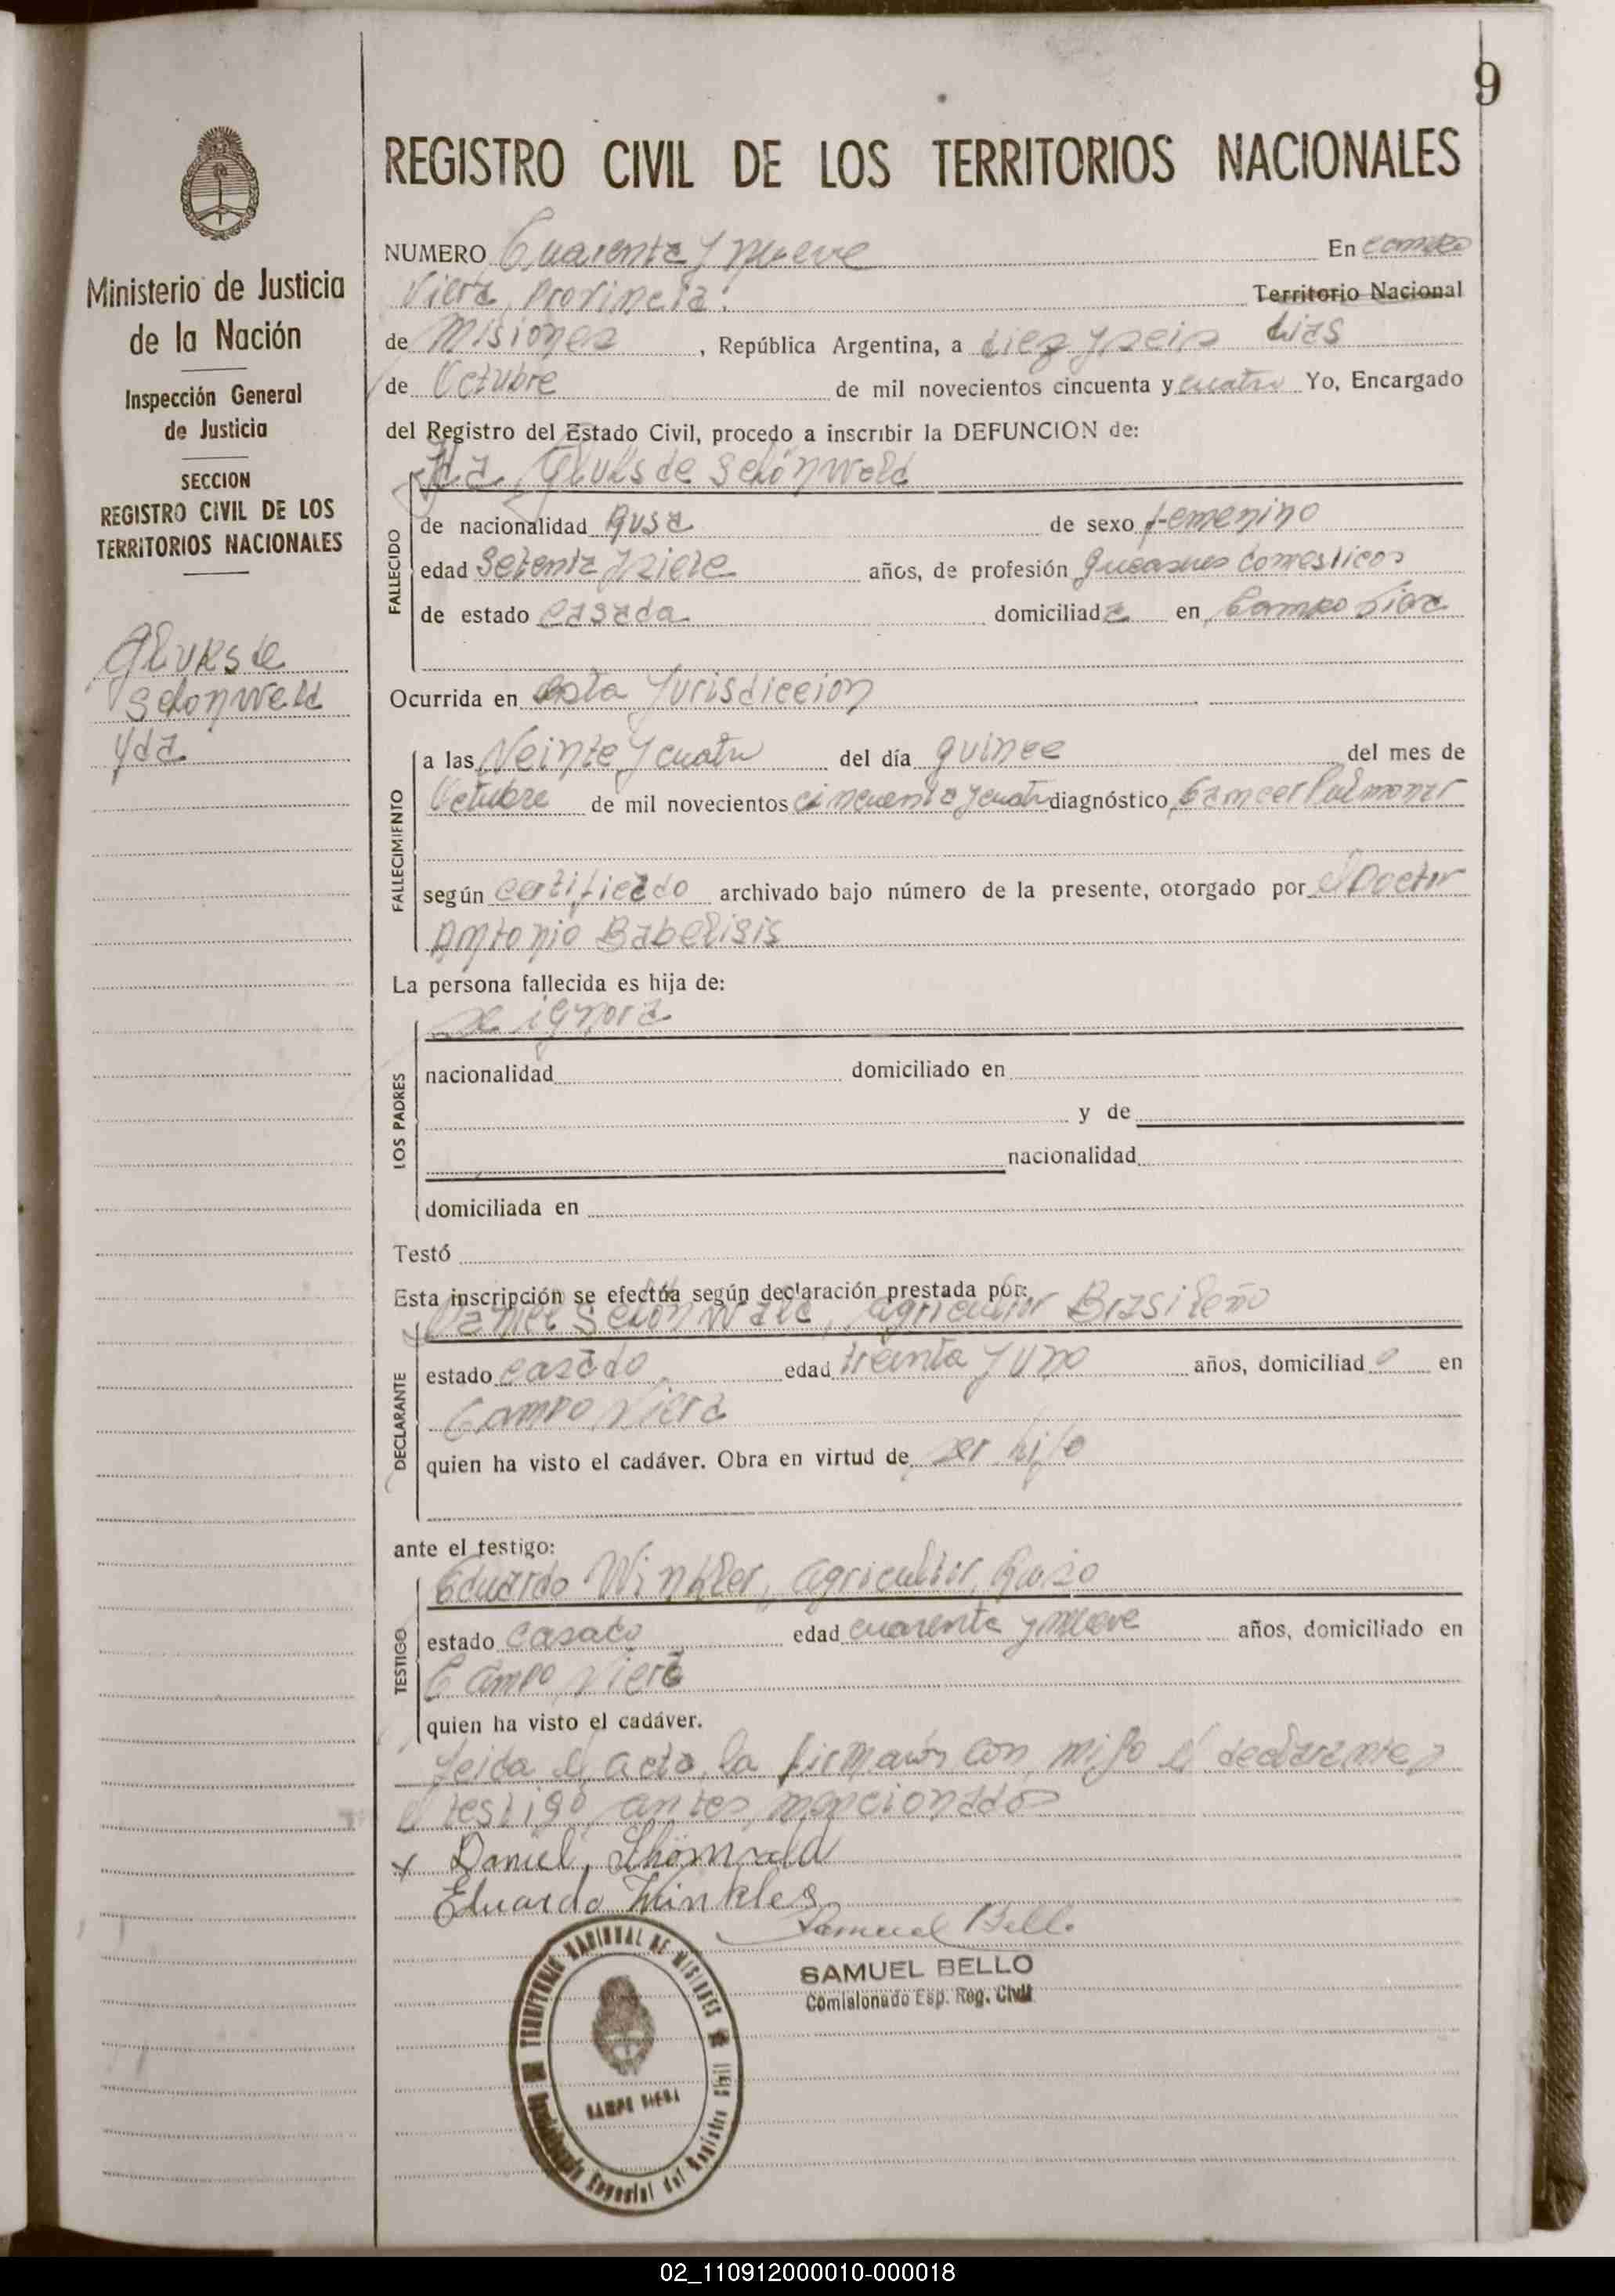 9
REGISTRO CIVIL DE LOS TERRITORIOS NACIONALES
Ministerio de Justicia
de la Nación
Inspección General
de Justicia
SECCION
REGISTRO CIVIL DE LOS
TERRITORIOS NACIONALES
Gluks de
Schonweld
Yda
NUMERO Cuarenta y nueve En campo
Viera, Provincia: Territorio Nacional
de Misiones, República Argentina, a diez y seis dias
de Octubre de mil novecientos cincuenta y cuatro Yo, Encargado
del Registro del Estado Civil, procedo a inscribir la DEFUNCION de:
Yda Gluks de Schönweld
FALLECIDO
de nacionalidad Rusa de sexo femenino
edad Setenta y siete años, de profesión queasues domesticos
de estado casada domiciliada en Campo Viera
Ocurrida en esta Jurisdiccion
FALLECIMIENTO
a las Veinte y cuatro del día quince del mes de
Octubre de mil novecientos cincuenta y cuatro diagnóstico Cancer Pulmonar
según certificado archivado bajo número de la presente, otorgado por el Doctor
Antonio Babelisis
La persona fallecida es hija de:
se ignora
LOS PADRES
nacionalidad domiciliado en
y de
nacionalidad
domiciliada en
Testó
Esta inscripción se efectúa según declaración prestada por:
Daniel Schonwald, agricultor Brasileño
DECLARANTE
estado casado edad treinta y uno años, domiciliado en
Campo Viera
quien ha visto el cadáver. Obra en virtud de ser hijo
ante el testigo:
Eduardo Winkler, agricultor, Ruso
TESTIGO
estado casado edad cuarenta y nueve años, domiciliado en
Campo Viera
quien ha visto el cadáver.
Leida el acta, la firmaron con migo el declarante y
el testigo antes mencionados
x Daniel, Shönwald
Eduardo Winkler
Samuel Bello
SAMUEL BELLO
Comisionado Esp. Reg. Civil
TERRITORIO NACIONAL DE MISIONES
CAMPO VIERA
Especial del Registro Civil
02_110912000010-000018